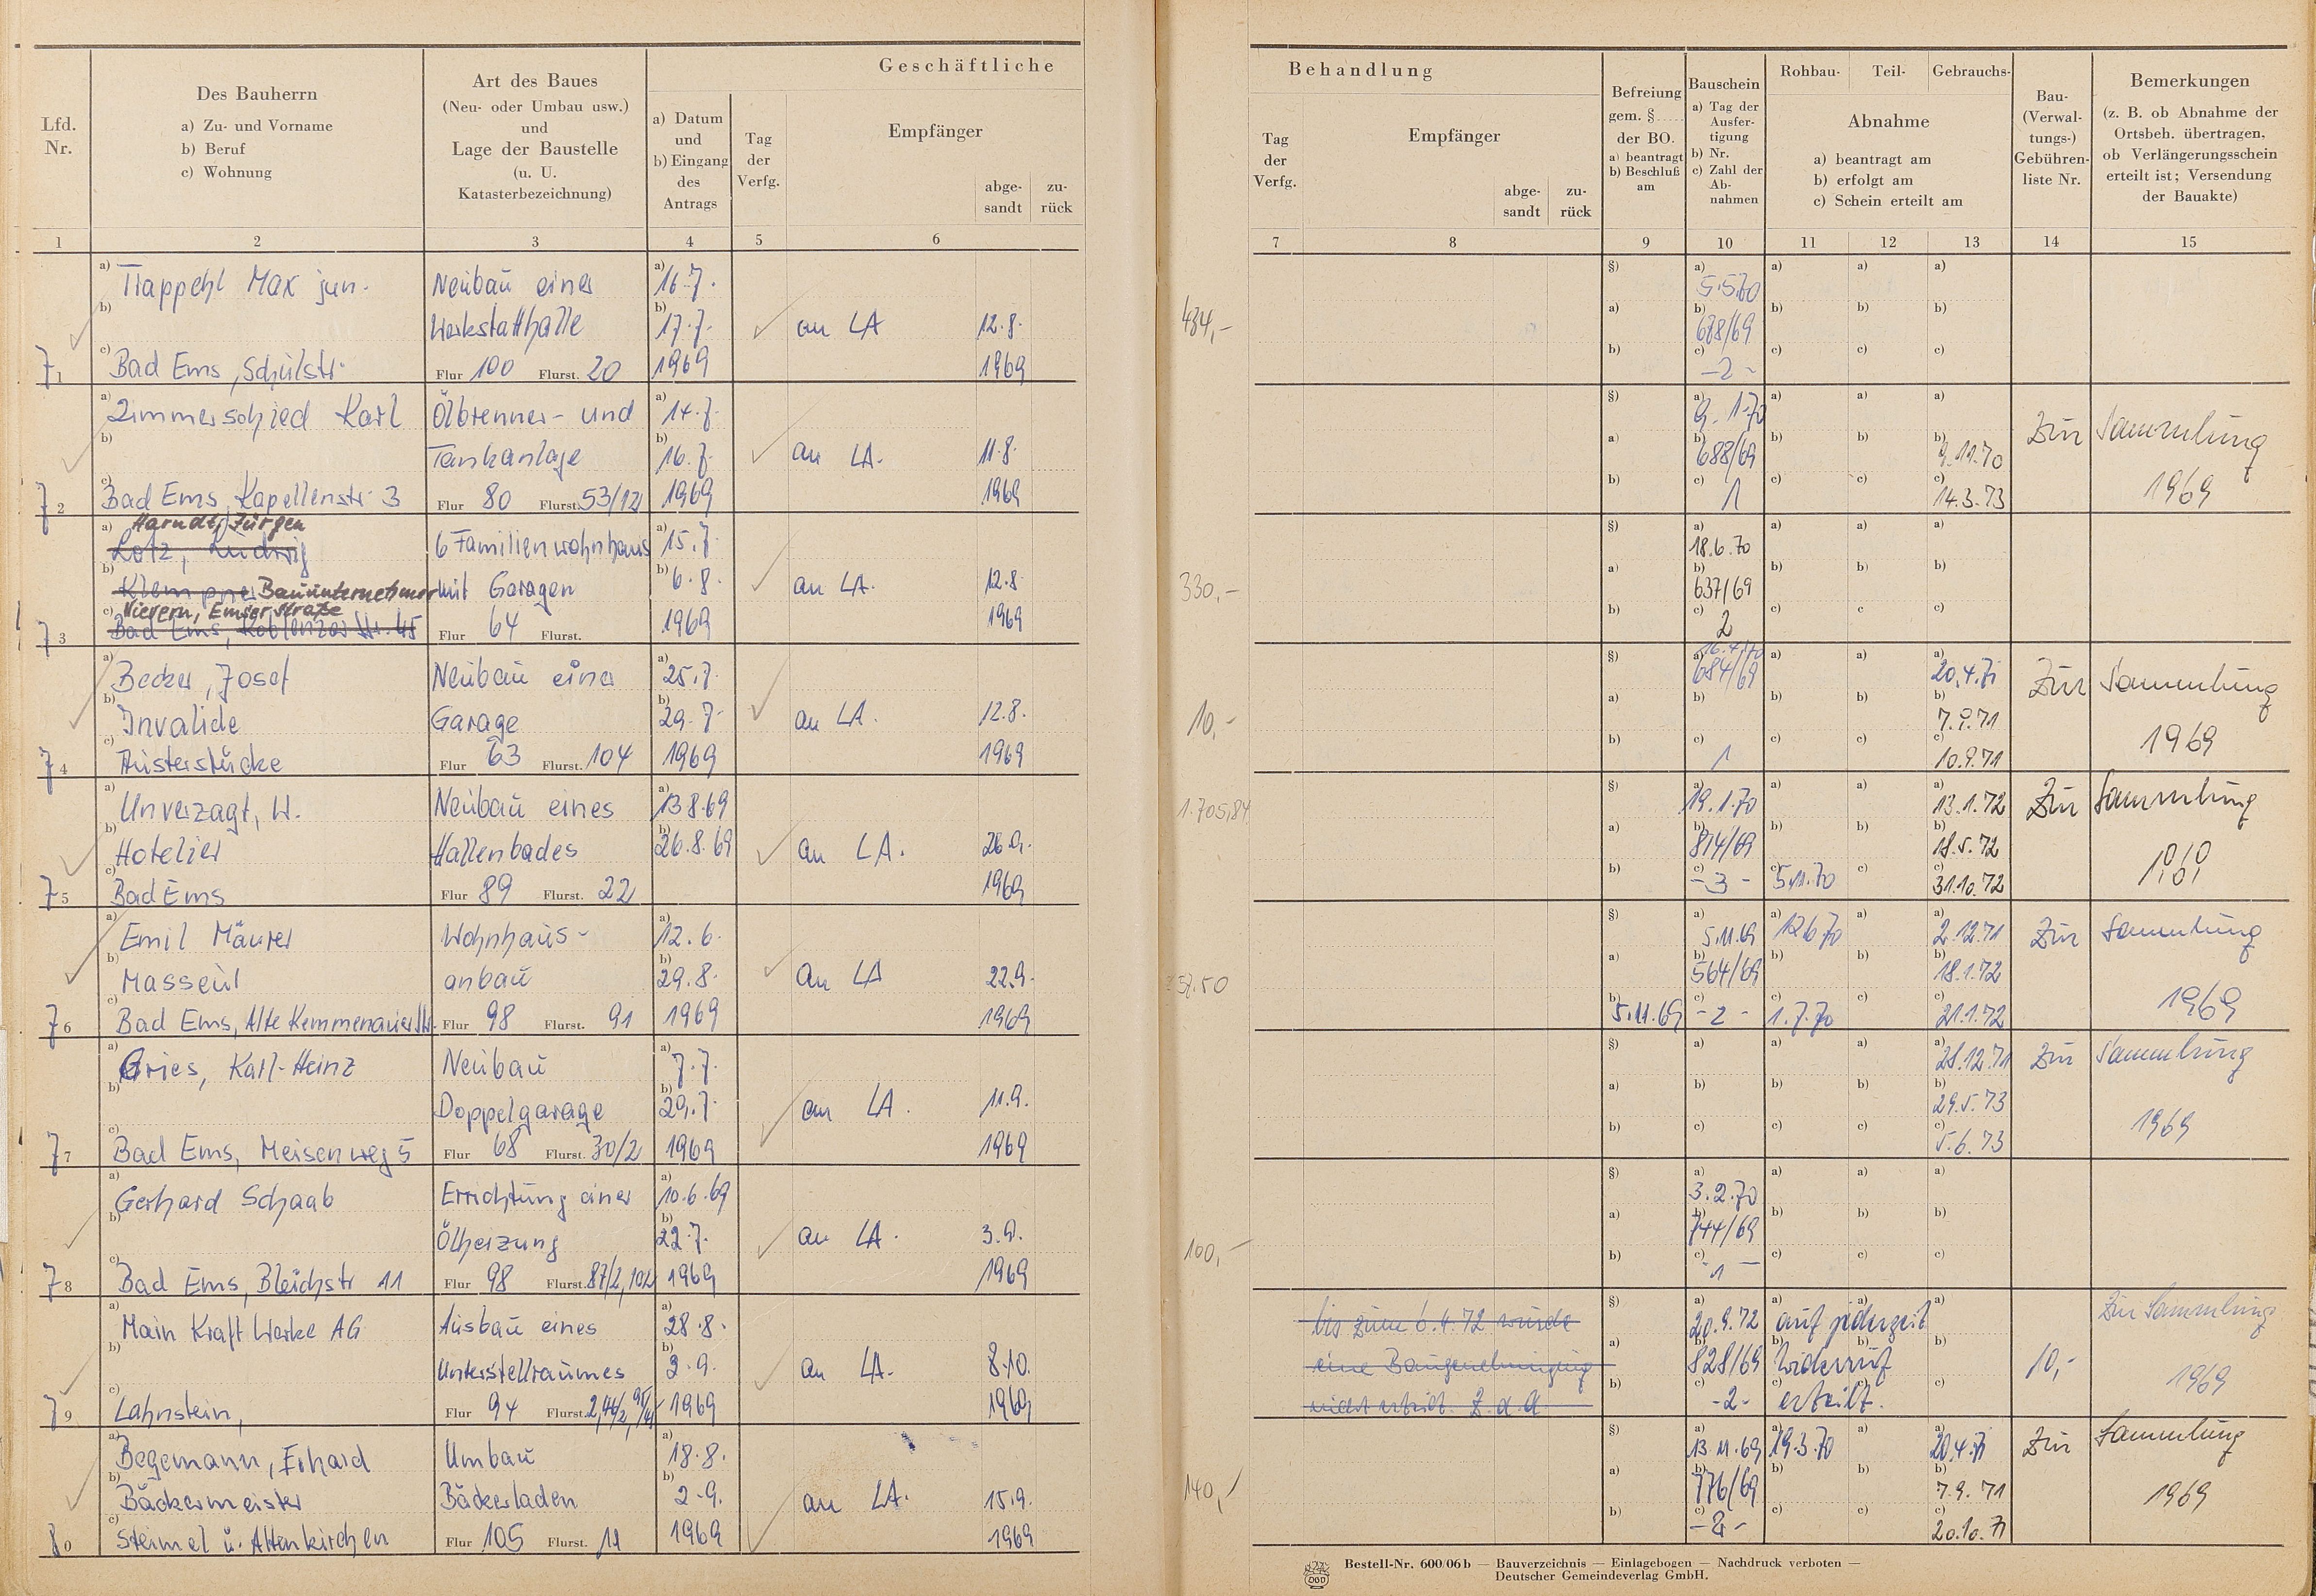 Lfd. Nr.
Des Bauherrn
a) Zu- und Vorname
b) Beruf
c) Wohnung
Art des Baues
(Neu- oder Umbau usw.)
und
Lage der Baustelle
(u. U.
Katasterbezeichnung)
Geschäftliche
a) Datum
und
b) Eingang
des
Antrags
Tag
der
Verfg.
Empfänger
abge-
sandt
zu-
rück
Behandlung
Tag
der
Verfg.
Empfänger
abge-
sandt
zu-
rück
Befreiung
gem. §
der BO.
a) beantragt
b) Beschluß
am
Bauschein
a) Tag der
Ausfer-
tigung
b) Nr.
c) Zahl der
Ab-
nahmen
Rohbau- Teil- Gebrauchs-
Abnahme
a) beantragt am
b) erfolgt am
c) Schein erteilt am
Bau-
(Verwal-
tungs-)
Gebühren-
liste Nr.
Bemerkungen
(z. B. ob Abnahme der
Ortsbeh. übertragen,
ob Verlängerungsschein
erteilt ist; Versendung
der Bauakte)
1 2 3 4 5 6 7 8 9 10 11 12 13 14 15
a) Trappehl Max jun. Neubau einer a) 16.7. § a) 5.5.70 a) a) a)
b) Werkstatthalle b) 17.7. an LA 12.8. 434,- a) b) 688/69 b) b) b)
71 c) Bad Ems, Schulstr. Flur 100 Flurst. 20 1969 1969 b) c) -2- c) c) c)
a) Zimmerschied Karl Ölbrenner- und a) 14.7. § a) 9.1.70 a) a) a) Zur Sammlung
b) Tankanlage b) 16.7. an LA. 11.8. a) b) 688/69 b) b) b) 9.11.70
72 c) Bad Ems, Kapellenstr. 3 Flur 80 Flurst. 53/12 1969 1969 b) c) 1 c) c) c) 14.3.73 1969
Harndt, Jürgen
a) Lotz, Ludwig 6 Familienwohnhaus a) 15.7. § a) 18.6.70 a) a) a)
b) Klempner Bauunternehmer mit Garagen b) 6.8. an LA. 12.8. 330,- a) b) 637/69 b) b) b)
Nievern, Emser Straße
73 c) Bad Ems, Koblenzer Str. 45 Flur 64 Flurst. 1969 1969 b) c) 2 c) c c)
16.4.70
a) Becker, Josef Neubau einer a) 25.7. § a) 684/69 a) a) a) 20.4.71 Zur Sammlung
b) Invalide Garage b) 29.7. an LA. 12.8. 10,- a) b) b) b) b) 7.9.71
74 c) Austerstücke Flur 63 Flurst. 104 1969 1969 b) c) 1 c) c) c) 10.9.71 1969
a) Unverzagt, W. Neubau eines a) 13.8.69 1.705,84 § a) 19.1.70 a) a) a) 13.1.72 Zur Sammlung
b) Hotelier Hallenbades b) 26.8.69 an LA. 26.9. a) b) 814/69 b) b) b) 18.5.72
75 c) Bad Ems Flur 89 Flurst. 22 1969 b) c) -3- c) 5.11.70 c) c) 31.10.72
a) Emil Mäurer Wohnhaus- a) 12.6. § a) 5.11.69 a) 12.6.70 a) a) 2.12.71 Zur Sammlung
b) Masseur anbau b) 29.8. an LA 22.9. a) b) 564/69 b) b) b) 18.1.72
76 c) Bad Ems, Alte Kemmenauer Str. Flur 98 Flurst. 91 1969 1969 b) 5.11.69 c) -2- c) 1.7.70 c) c) 21.1.72 1969
a) Gries, Karl-Heinz Neubau a) 7.7. § a) a) a) a) 28.12.71 Zur Sammlung
b) Doppelgarage b) 29.7. an LA. 11.9. a) b) b) b) b) 29.5.73
77 c) Bad Ems, Meisenweg 5 Flur 68 Flurst. 30/2 1969 1969 b) c) c) c) c) 5.6.73 1969
a) Gerhard Schaab Errichtung einer a) 10.6.69 § a) 3.2.70 a) a) a)
b) Ölheizung b) 22.7. an LA. 3.9. 100,- a) b) 744/69 b) b) b)
78 c) Bad Ems, Bleichstr 11 Flur 98 Flurst. 87/2, 102 1969 1969 b) c) -1- c) c) c)
a) Main Kraft Werke AG Ausbau eines a) 28.8. bis zum 6.4.72 wurde § a) 20.9.72 a) auf jederzeit a) a) Zur Sammlung
b) Unterstellraumes b) 3.9. an LA. 8.10. eine Baugenehmigung a) b) 828/69 b) Widerruf b) b) 10,-
79 c) Lahnstein, Flur 94 Flurst. 1969 1969 nicht erteilt. Z.d.A. b) c) -2- c) erteilt. c) c) 1969
a) Begemann, Erhard Umbau a) 18.8. § a) 13.11.69 a) 19.3.70 a) a) 20.4.71 Zur Sammlung
b) Bäckermeister Bäckerladen b) 2.9. an LA. 15.9. 140,- a) b) 776/69 b) b) b) 7.9.71
80 c) Steimel ü. Altenkirchen Flur 105 Flurst. 11 1969 1969 b) c) -2- c) c) c) 20.10.71 1969
Bestell-Nr. 600/06 b — Bauverzeichnis — Einlagebogen — Nachdruck verboten —
Deutscher Gemeindeverlag GmbH.